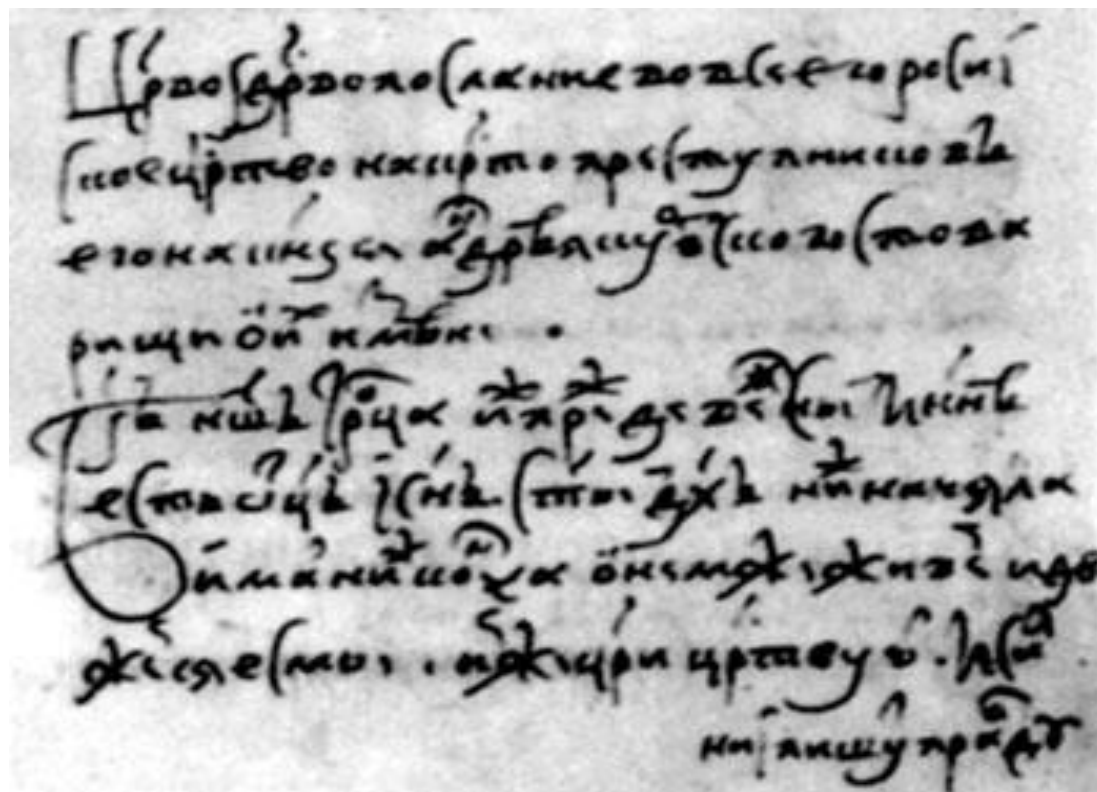 Црво гдрво послание во все его росиі
ское цртво на крто преступниковъ
его на кнзя андрѣя курбского с това
рищи о их измѣне .
Бгъ ншъ трца иже прежде векъ сыи и ннѣ
есть оцъ и снъ и стыи дхъ ниже начала
имат ниже конца о немже живем и дви
жемся есмы . имже цри цртвуют . и сил
ниі пишут правду